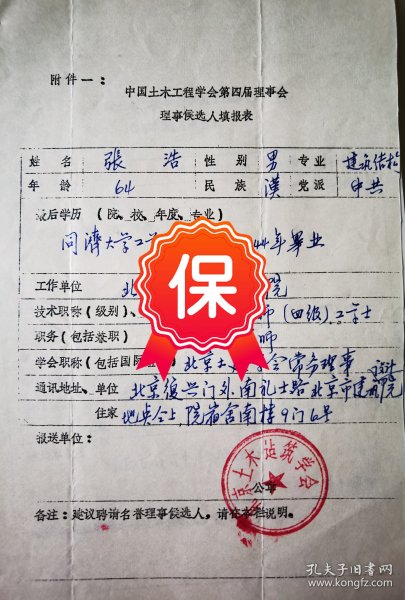 附件一：
中国土木工程学会第四届理事会
理事候选人填报表
姓名 張浩 性别 男 专业 建筑结构
年龄 64 民族 漢 党派 中共
最后学历（院、校、年度、专业）
同濟大学工 44年畢业
保
工作单位 北 院
技术职称（级别）、 师（四级）工学士
职务（包括兼职） 师
学会职称（包括国际 北京土 学会常务理事
通讯地址、单位 北京復兴门外南礼士路北京市建筑设计院
住家 地点仝上院宿舍南楼9门6号
报送单位：
京土木建筑学会
公章
备注：建议聘请名誉理事候选人，请在本栏说明。
孔夫子旧书网
www.kongfz.com